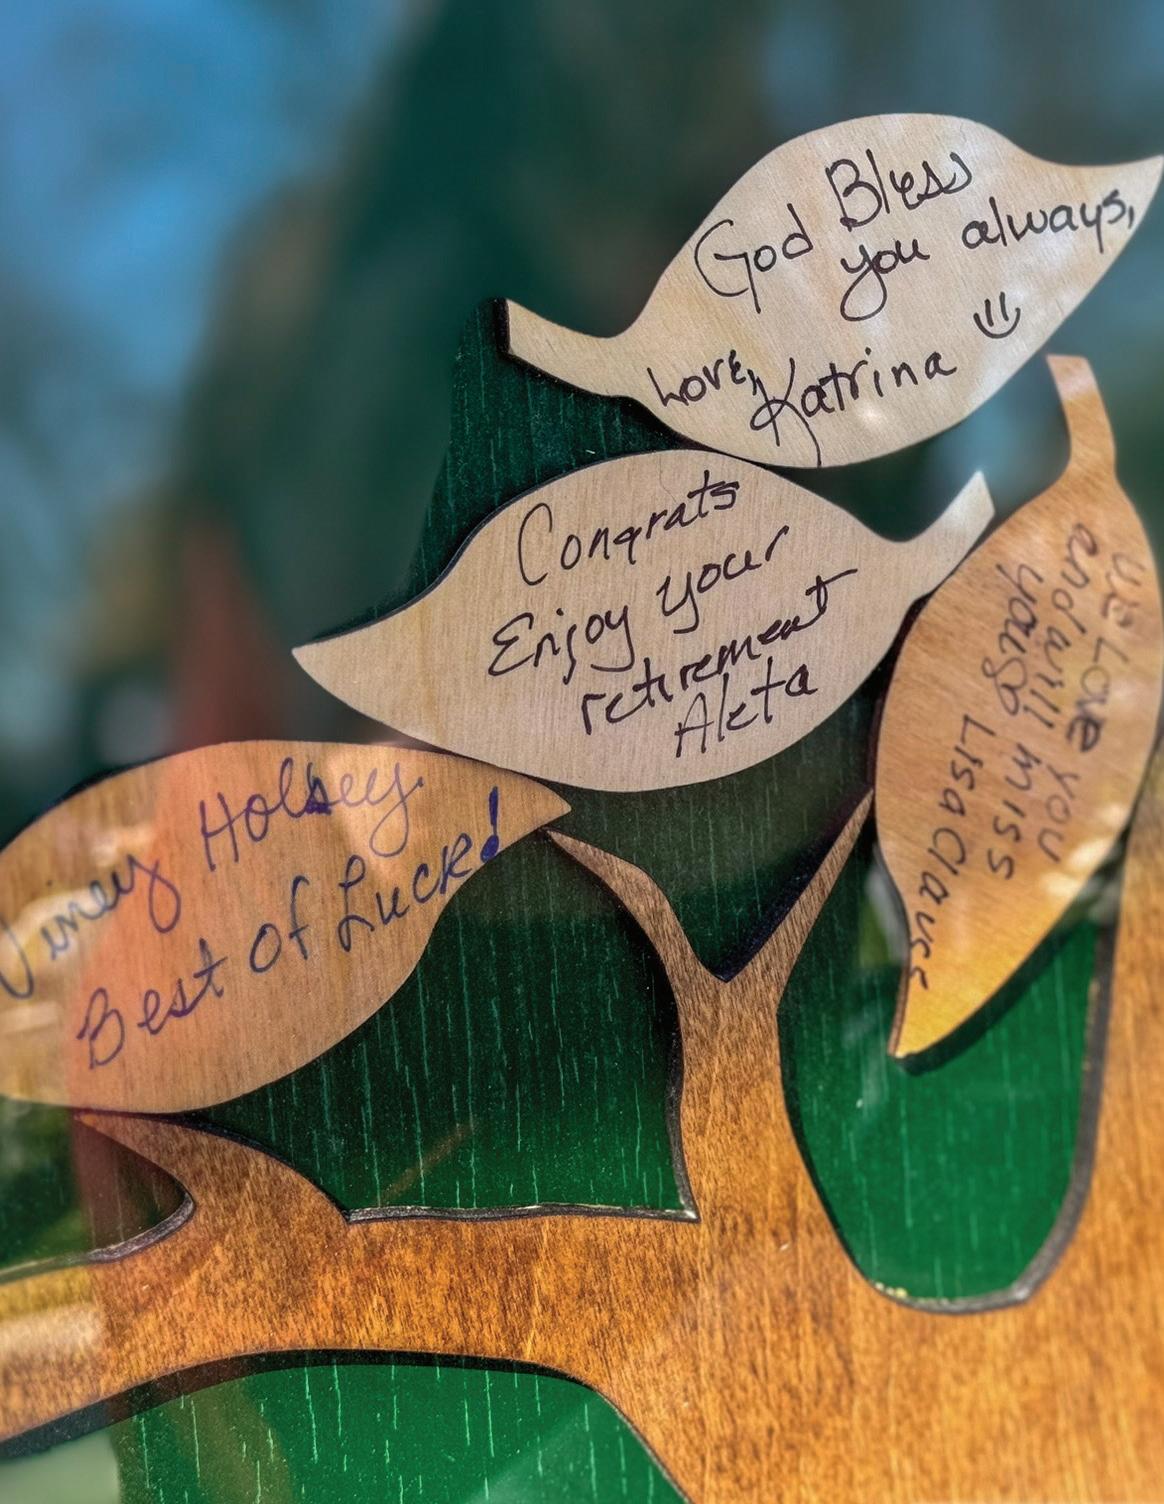 God Bless
you always,
Love,
Katrina
Congrats
Enjoy your
retirement
Aleta
Holsey
Best Of Luck!
We Love you
and will miss
you
Lisa Clause